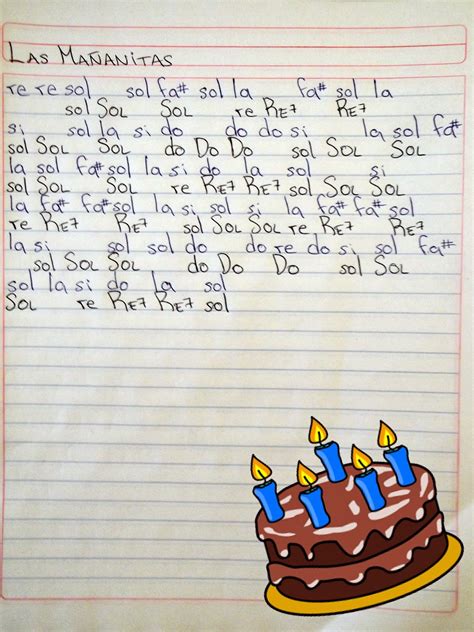 LAS MAÑANITAS
re re sol sol fa# sol la fa# sol la
sol SOL SOL re RE7 RE7
si sol la si do do do si la sol fa#
sol SOL SOL do DO DO sol SOL SOL
la sol fa# sol la si do la sol si
sol SOL SOL re RE7 RE7 sol SOL SOL
la fa# fa# sol la si sol si la fa# fa# sol
re RE7 RE7 sol SOL SOL re RE7 RE7
la si sol sol do do re do si sol fa#
sol SOL SOL do DO DO sol SOL
sol la si do la sol
SOL re RE7 RE7 sol